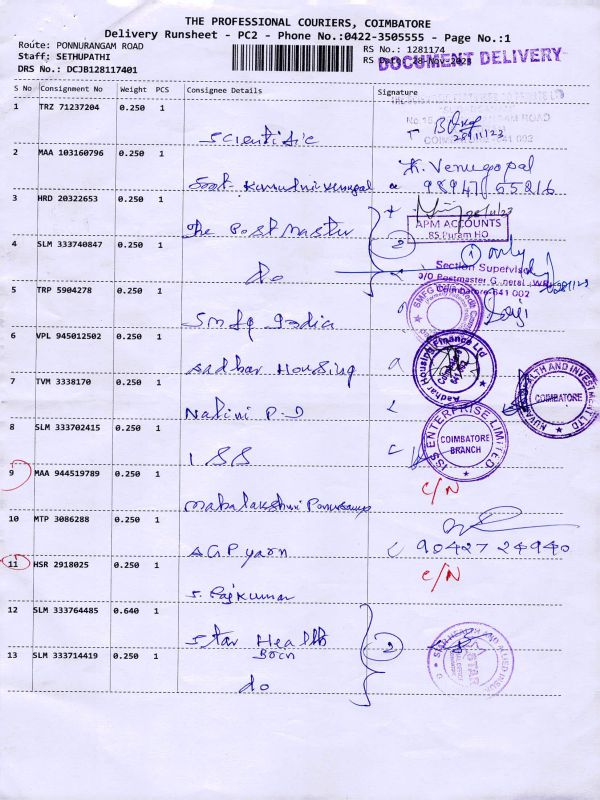 THE PROFESSIONAL COURIERS, COIMBATORE
Delivery Runsheet - PC2 - Phone No.:0422-3505555 - Page No.:1
Route: PONNURANGAM ROAD
Staff: SETHUPATHI
DRS No.: DCJB128117401
RS No.: 1281174
RS Date: 28-Nov-2023
DOCUMENT DELIVERY
S No Consignment No Weight PCS Consignee Details Signature
1 TRZ 71237204 0.250 1
Scientific
28/11/23
2 MAA 103160796 0.250 1
K. Venugopal
98947 65216
3 HRD 20322653 0.250 1
The Post Master
APM ACCOUNTS
RS Puram HO
4 SLM 333740847 0.250 1
Do
2
1 only
Section Supervisor
Coimbatore-641 002
5 TRP 5904278 0.250 1
Smfg India
6 VPL 945012502 0.250 1
Aadhar Housing
Aadhar Housing Finance Ltd
7 TVM 3338170 0.250 1
Nalini P.D
COIMBATORE
8 SLM 333702415 0.250 1
ISS
ISS ENTERPRISE LIMITED
COIMBATORE
BRANCH
9 MAA 944519789 0.250 1
C/N
Mahalakshmi
10 MTP 3086288 0.250 1
AGP yarn
90427 24940
11 HSR 2918025 0.250 1
C/N
S. Rajkumar
12 SLM 333764485 0.640 1
Star Health
2
STAR HEALTH AND ALLIED INSU
STAR
13 SLM 333714419 0.250 1
do